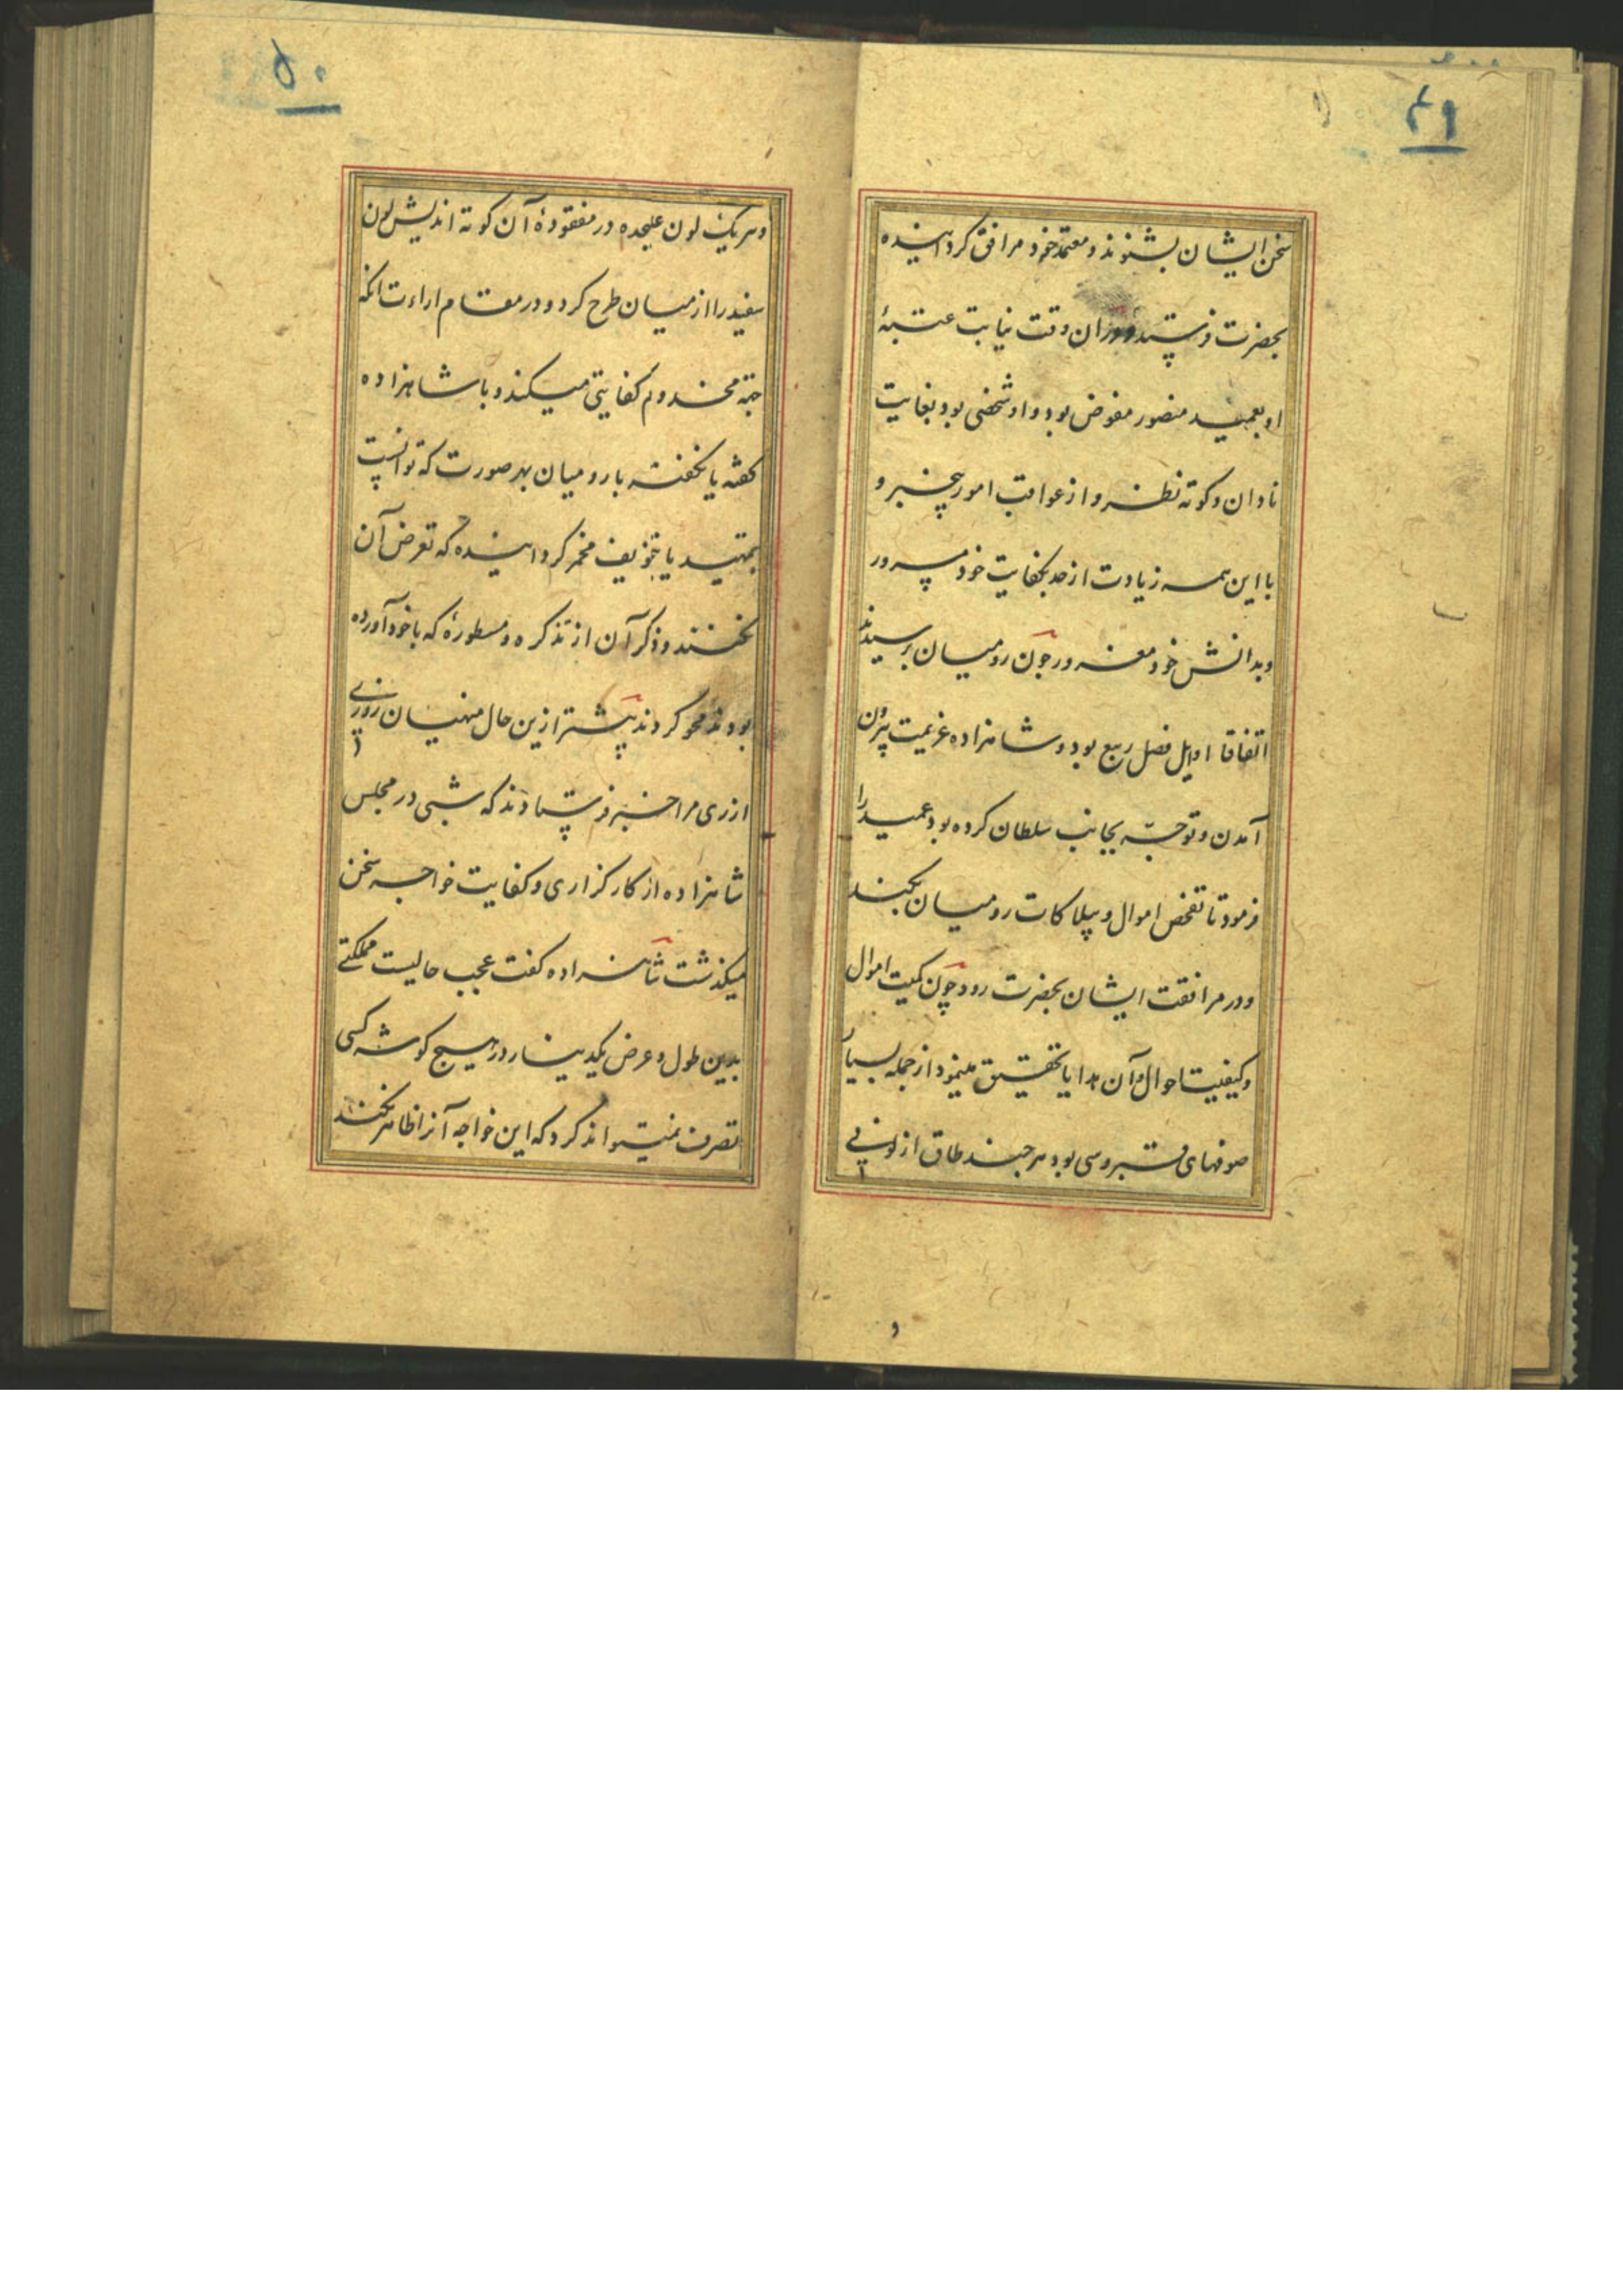 ۴۹
سخن ایشان بشنوند و معتمد خود مرافق کردانیده
بحضرت فرستند و دران وقت نیابت عتبهٔ
او بعمید منصور مفوض بود و او شخصی بود بغایت
نادان و کوته نظر و از عواقب امور بیخبر و
با این همه زیادت از حد بکفایت خود مسرور
و بدانش خود مغرور چون رومیان برسیدند
اتفاقا اوایل فصل ربیع بود و شاهزاده عزیمت بیرون
آمدن و توجه بجانب سلطان کرده بود عمید را
فرمود تا تفحص اموال و بیلاکات رومیان بکند
و در مرافقت ایشان بحضرت رود چون کمیت اموال
و کیفیت احوال آن هدایا تحقیق مینمود از جمله بسیار
صوفهای قبروسی بود هر چند طاق از لونی
۵۰
و هر یک لون علیحده در معقودهٔ آن کوته اندیش لون
سفید را از میان طرح کرد و در مقام اراءت انکه
جهة مخدوم کفایتی میکند و با شاهزاده
کفته یا نکفته با رومیان بهر صورت که توانست
بتهدید یا بتخویف مخمر کردانیده که تعرض آن
نکنند و ذکر آن از تذکره و مسطورهٔ که با خود آورده
بودند محو کردند پیشتر ازین حال منهیان روزی
از ری مرا خبر فرستادند که شبی در مجلس
شاهزاده از کارکزاری و کفایت خواجه سخن
میکذشت شاهزاده کفت عجب حالیست مملکتی
بدین طول و عرض یکدینار در هیچ کوشه کسی
تصرف نمیتواند کرد که این خواجه آنرا ظاهر نکند